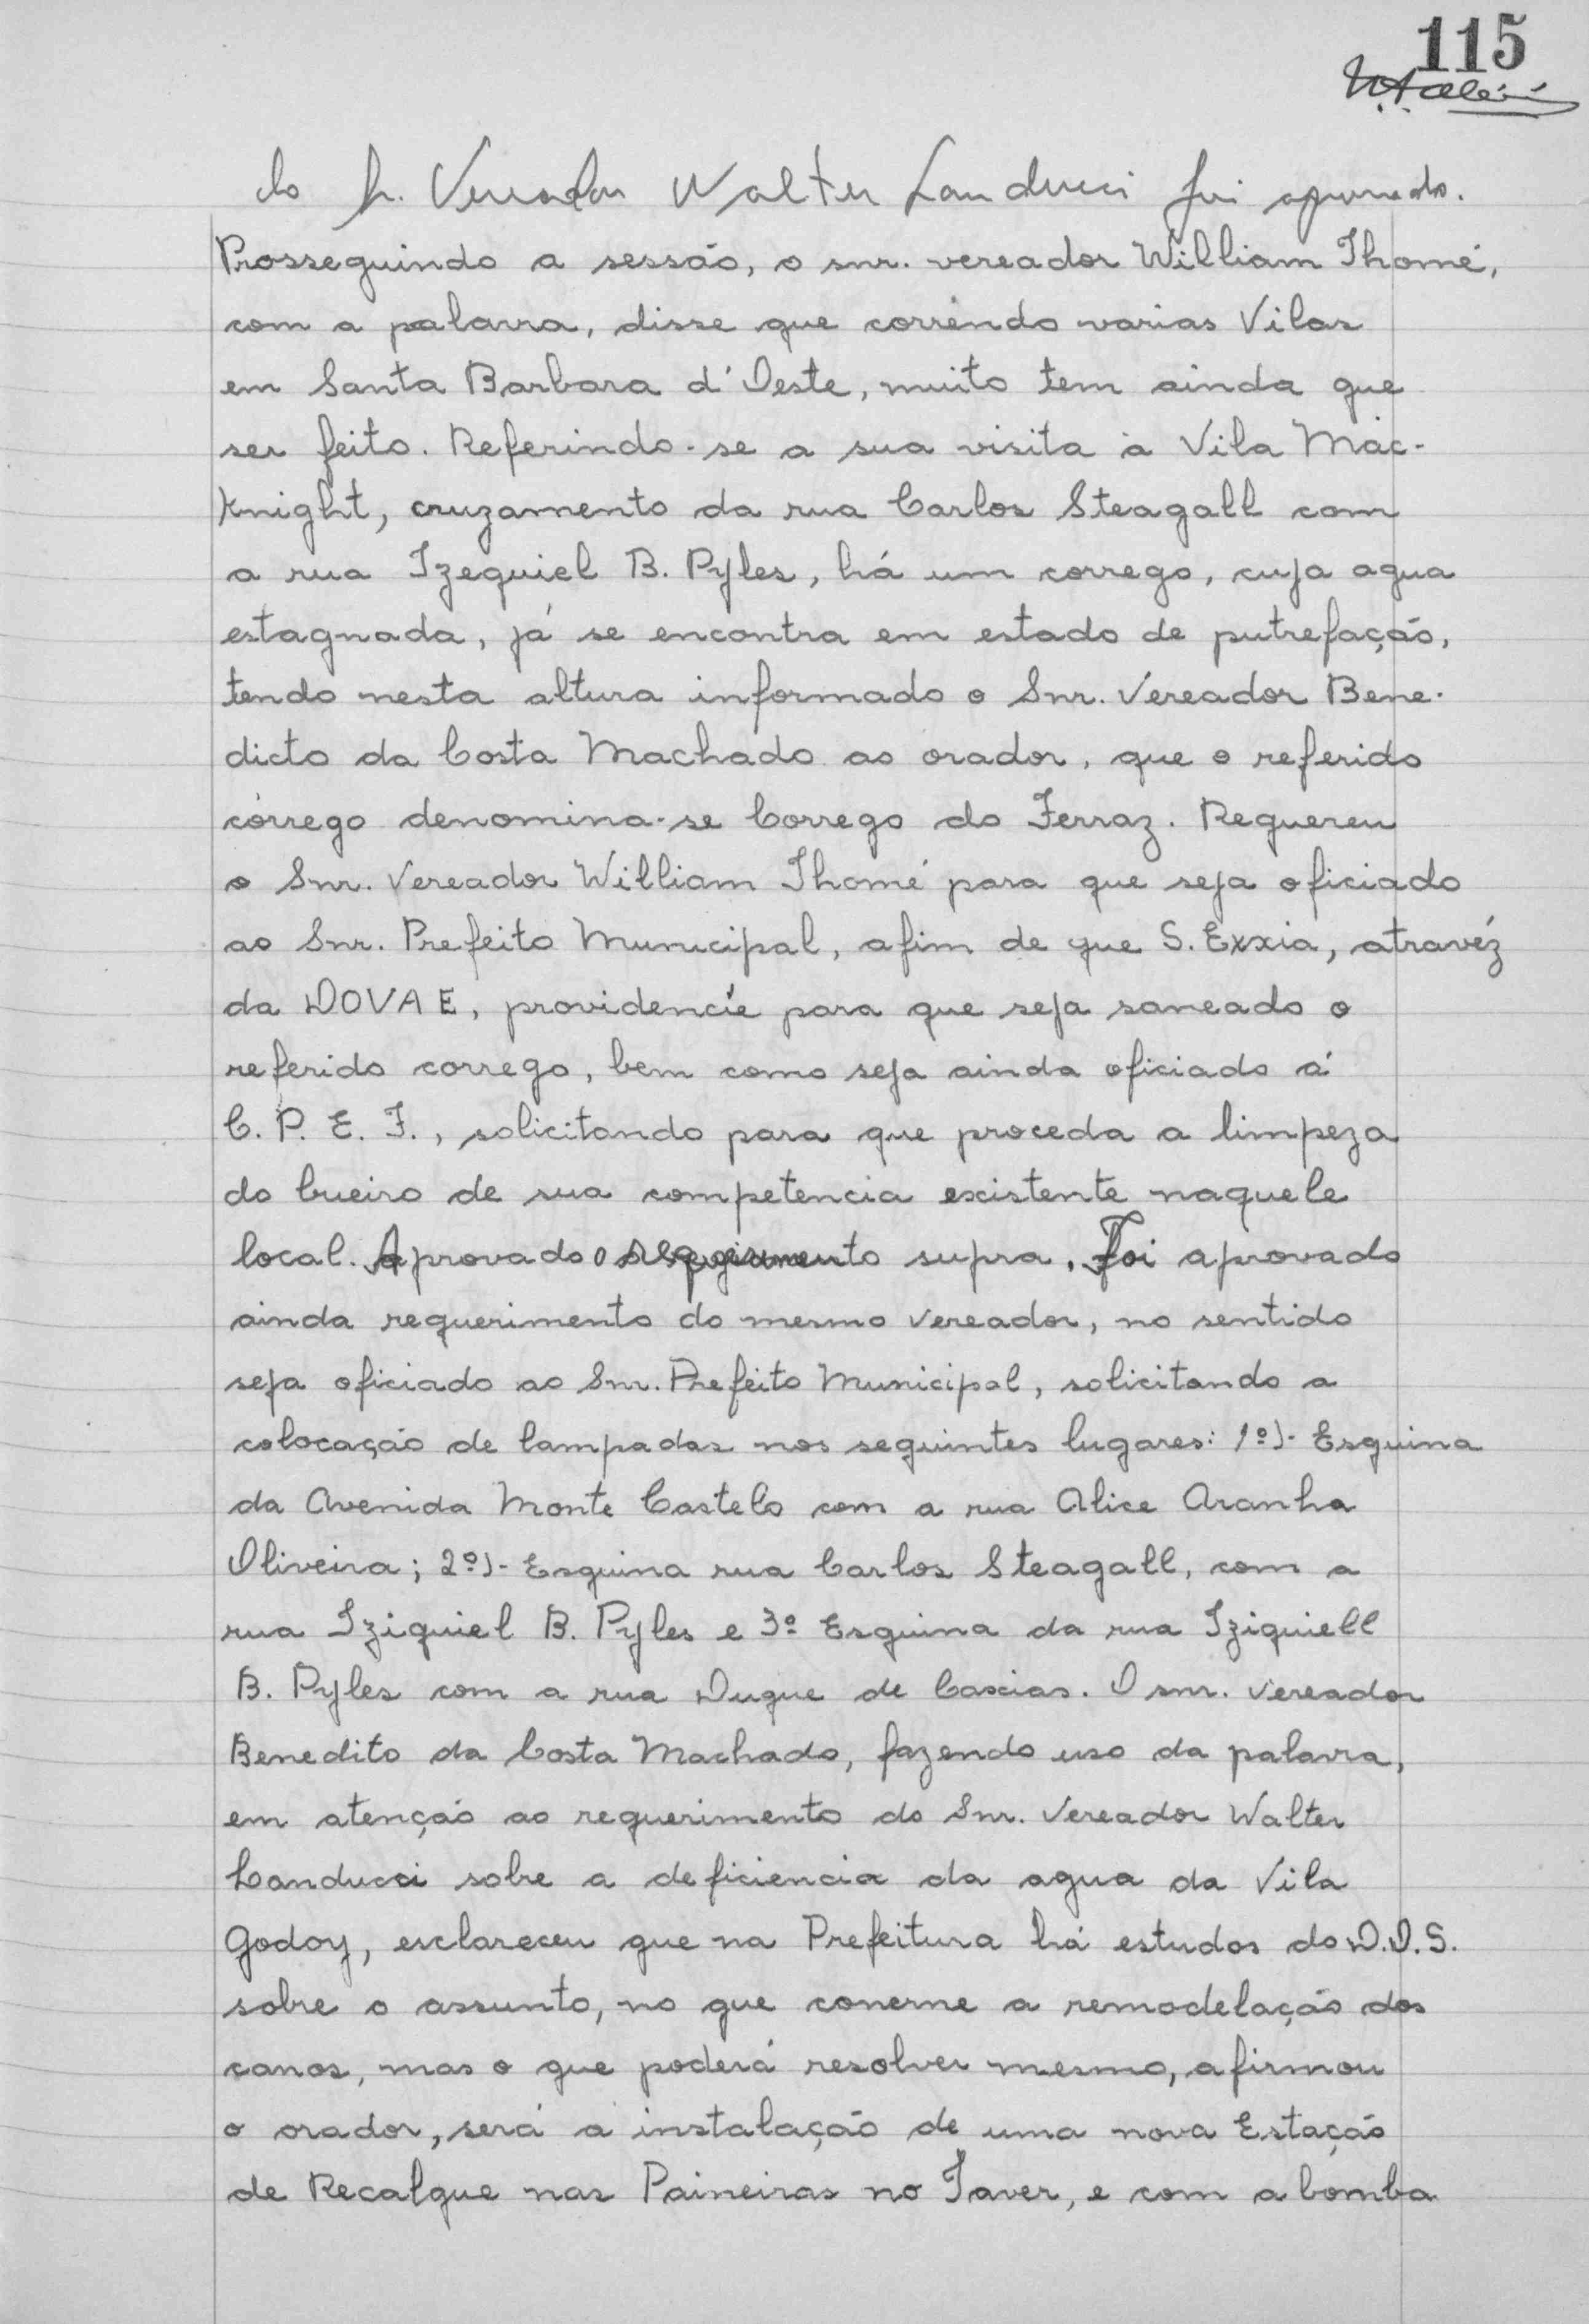 115
do Sr. Vereador Walter Landucci foi aprovado.
Prosseguindo a sessão, o snr. vereador William Thomé,
com a palavra, disse que corrêndo varias Vilas
em Santa Barbara d'Oeste, muito tem ainda que
ser feito. Referindo-se a sua visita à Vila Mac-
Knight, cruzamento da rua Carlos Steagall com
a rua Izequiel B. Pyles, há um corrego, cuja agua
estagnada, já se encontra em estado de putrefação,
tendo nesta altura informado o Snr. Vereador Bene-
dicto da Costa Machado ao orador, que o referido
córrego denomina-se Corrego do Ferraz. Requereu
o Snr. Vereador William Thomé para que seja oficiado
ao Snr. Prefeito Municipal, afim de que S. Exxia, atravéz
da DOVAE, providencíe para que seja saneado o
referido corrego, bem como seja ainda oficiado á
C. P. E. F., solicitando para que proceda a limpeza
do bueiro de sua competencia existente naquele
local. Aprovado o requerimento supra. Foi aprovado
ainda requerimento do mesmo vereador, no sentido
seja oficiado ao Snr. Prefeito Municipal, solicitando a
colocação de lampadas nos seguintes lugares: 1º)- Esquina
da Avenida Monte Castelo com a rua Alice Aranha
Oliveira; 2º)- Esquina rua Carlos Steagall, com a
rua Iziquiel B. Pyles e 3º Esquina da rua Iziquiell
B. Pyles com a rua Duque de Caxias. O snr. vereador
Benedito da Costa Machado, fazendo uso da palavra,
em atenção ao requerimento do Snr. Vereador Walter
Landucci sobre a deficiencia da agua da Vila
Godoy, esclareceu que na Prefeitura há estudos do D.O.S.
sobre o assunto, no que conerne a remodelação dos
canos, mas o que poderá resolver mesmo, afirmou
o orador, será a instalação de uma nova Estação
de Recalque nas Paineiras no Taver, e com a bomba